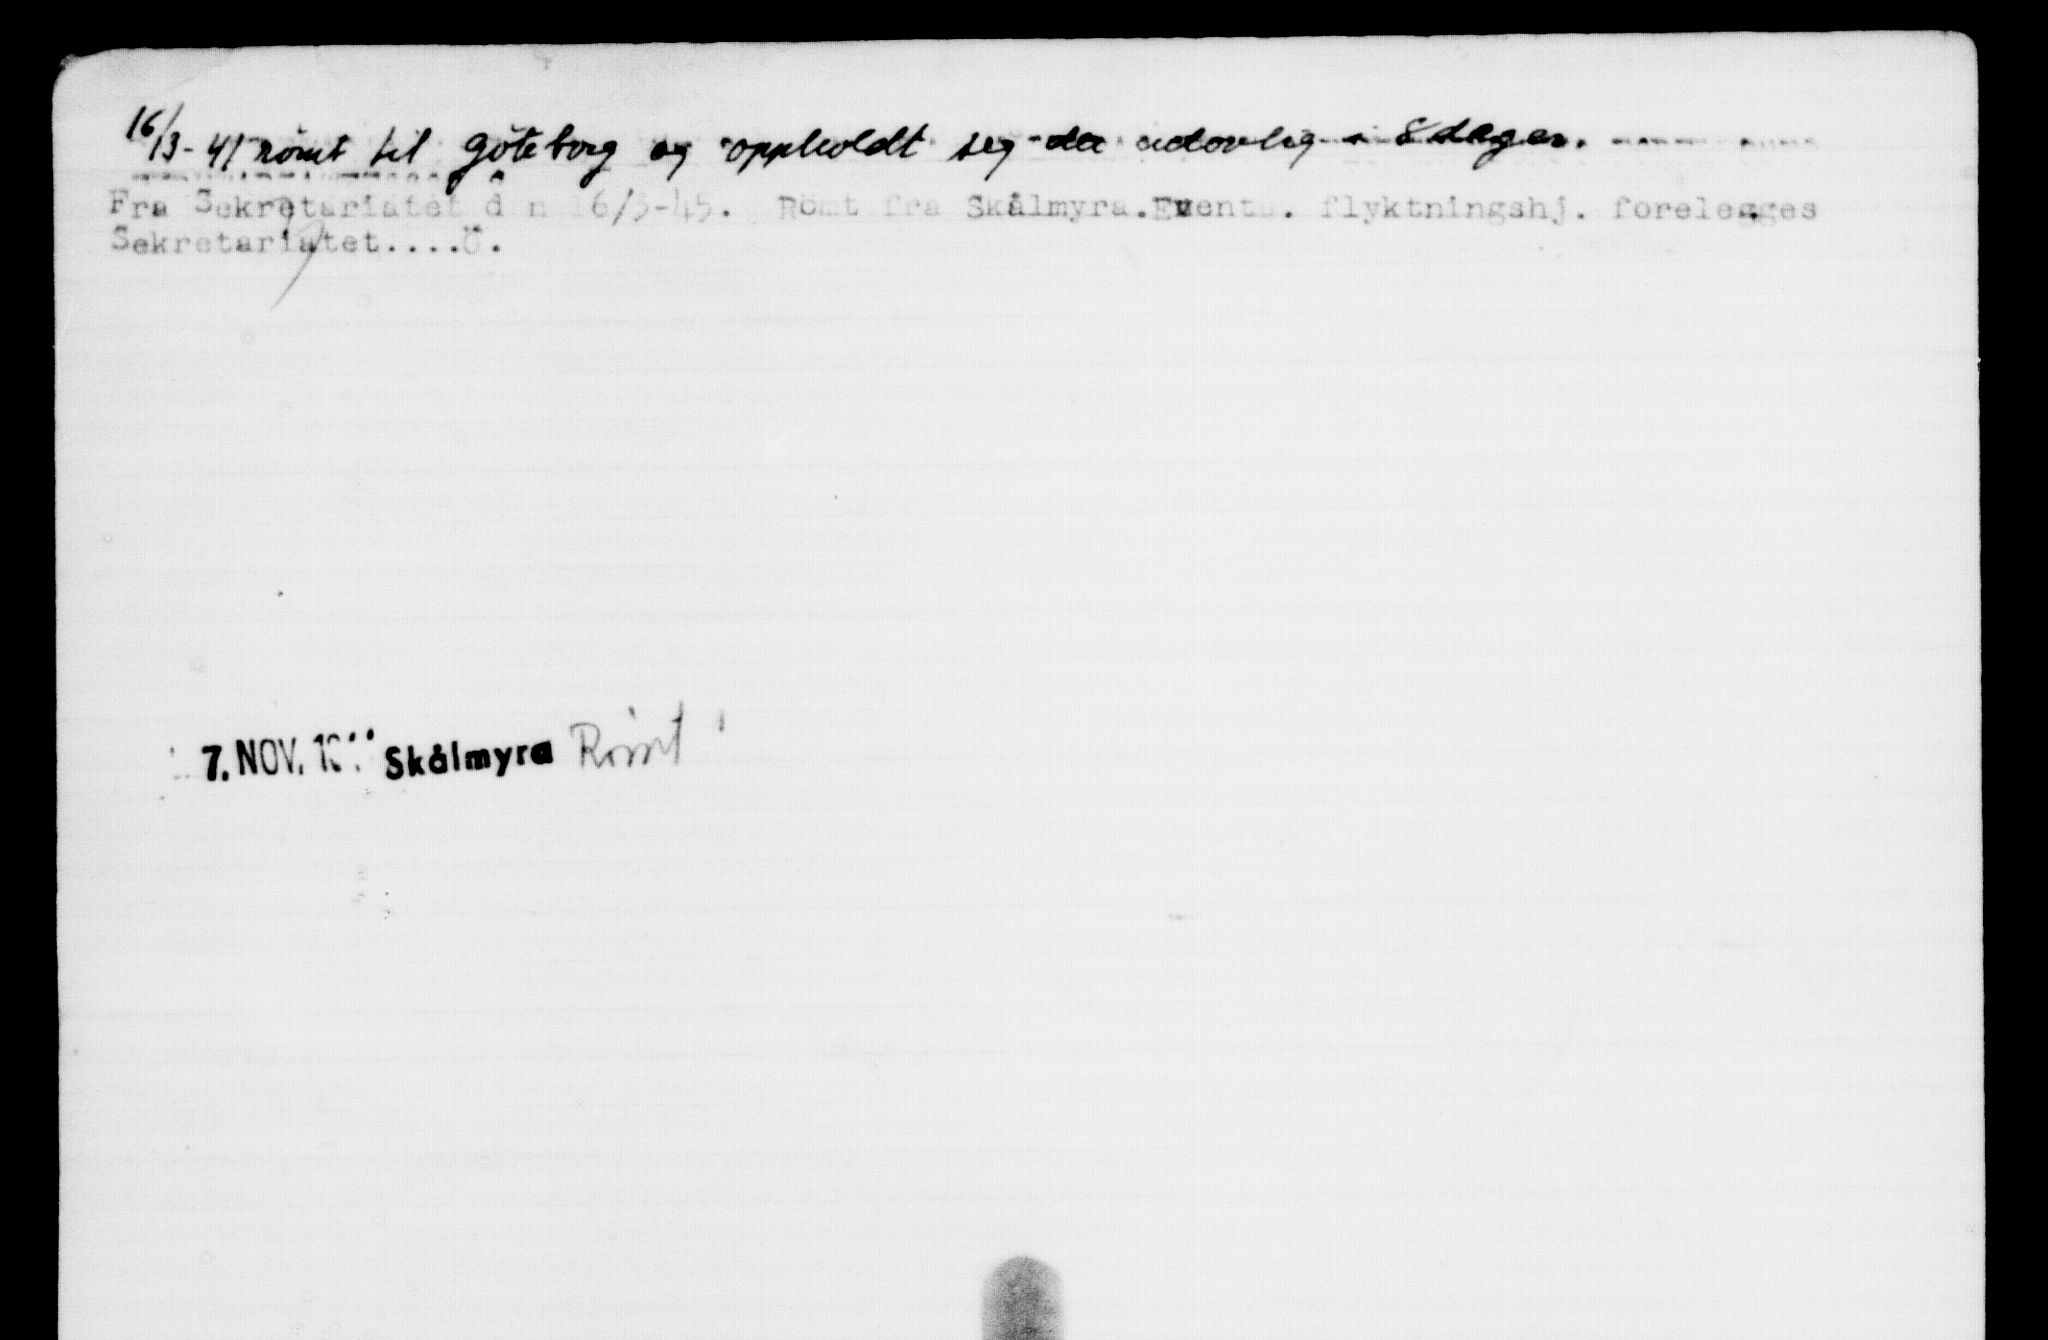 16/3-41 römt til Göteborg og oppholdt seg der ulovlig i 8 dager.
Fra Sekretariatet den 16/3-45. Römt fra Skålmyra. Event. flyktningshj. forelegges
Sekretariatet....Ö.
7. NOV. Skålmyra Römt